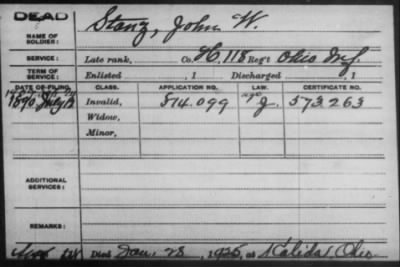 DEAD
NAME OF SOLDIER: Stanz, John W.
SERVICE: Late rank, Co. H, 118 Reg't Ohio Inf.
TERM OF SERVICE: Enlisted , 1 Discharged , 1
DATE OF FILING. CLASS. APPLICATION NO. LAW. CERTIFICATE NO.
1890 July 12 Invalid, 814.099 J. 573263
Widow,
Minor,
ADDITIONAL SERVICES:
REMARKS:
Died Jan. 28, 1925, at Kalida, Ohio